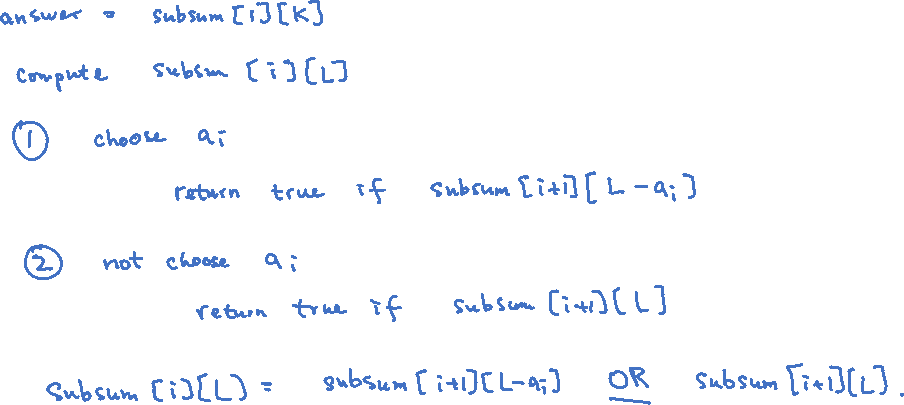 answer = subsum [i][K]
compute subsum [i][L]
① choose aᵢ
return true if subsum [i+1][L-aᵢ]
② not choose aᵢ
return true if subsum [i+1][L]
Subsum [i][L] = subsum [i+1][L-aᵢ] OR subsum [i+1][L].